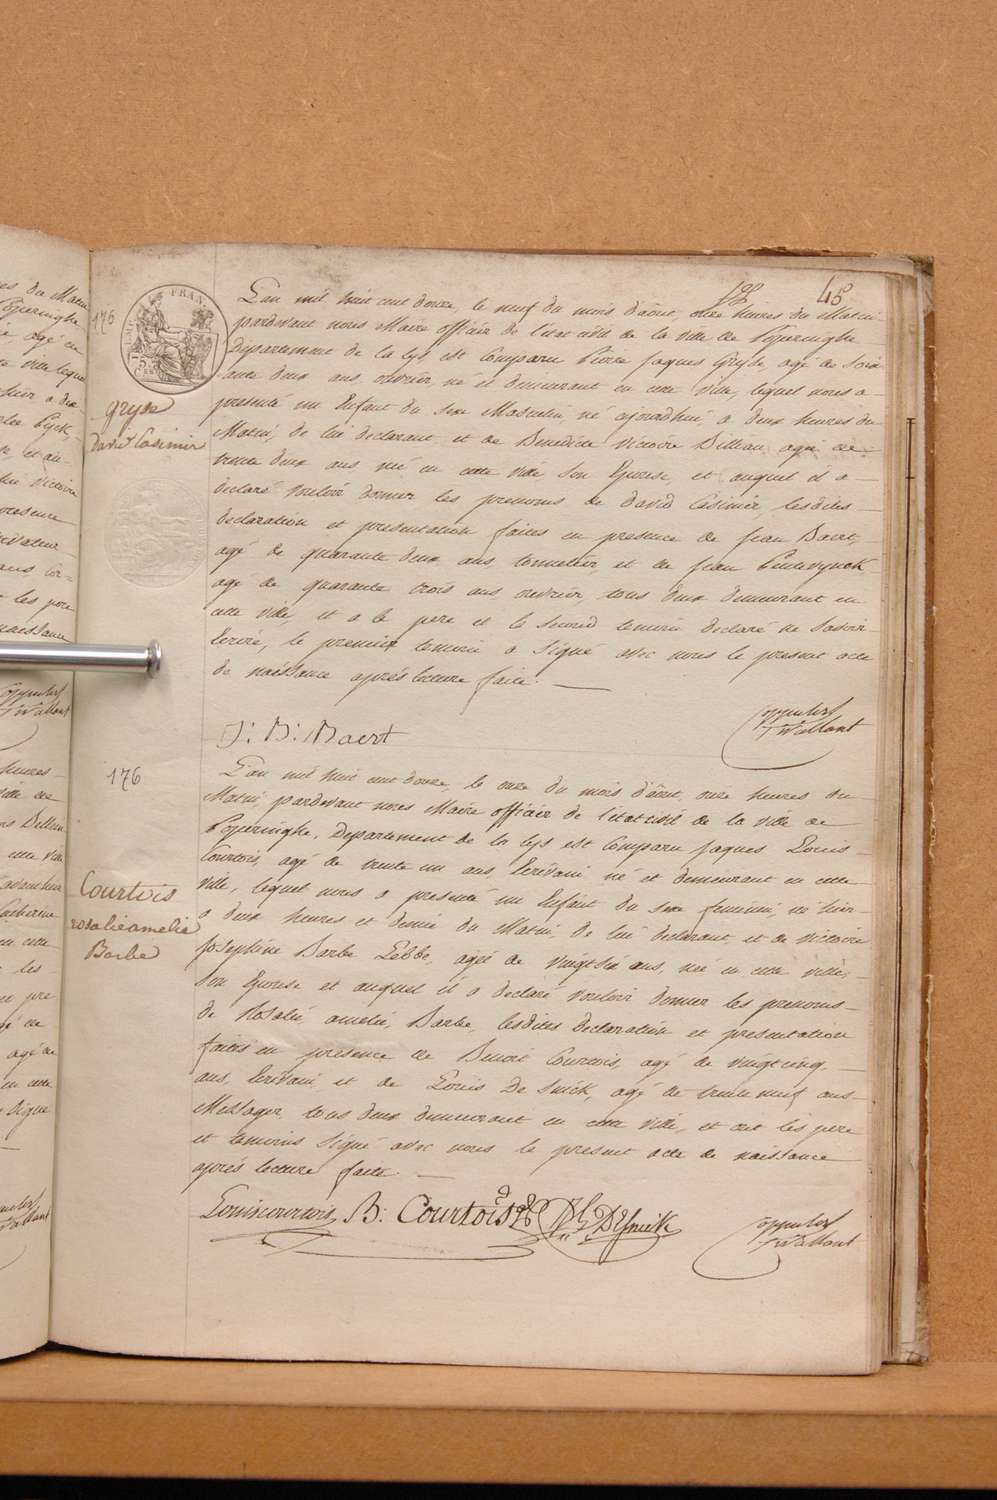 45
175
FRAN
gryse
David Casimir
L'an mil huit cent douze, le neuf du mois d'août, onze heures du Matin
pardevant nous Maire officier de l'état civil de la ville de Poperinghe
Département de la Lys est Comparu Pierre Jaques Gryse, agé de soix
ante deux ans, ouvrier né et demeurant en cette ville, lequel nous a
presenté un Enfant du sexe Masculin, né ajourdhui, a deux heures du
Matin, de lui declarant, et de Benedicte Victoire Dillieu agée de
trente deux ans, née en cette ville son Epouse, et auquel il a
declaré vouloir donner les prenoms de David Casimir, lesdites
declaration et presentation faites en presence de Jean Baert,
agé de quarante deux ans tonnelier, et de Jean
agé de quarante trois ans ouvrier, tous deux demeurant en
cette ville, et a le pere et le second temoin declaré ne savoir
Ecrire, le premier temoin a signé avec nous le present acte
de naissance aprés lecture faite.
J: B: Baert
176
Courtois
rosalie amelie
Barbe
L'an mil huit cent douze, le onze du mois d'août, onze heures du
Matin, pardevant nous Maire officier de l'état civil de la ville de
Poperinghe, Departement de la Lys est Comparu Jaques Louis
Courtois, agé de trente un ans, Ecrivain né et demeurant en cette
Ville, lequel nous a presenté un Enfant du sexe feminin, né hier
a deux heures et demie du Matin, de lui declarant, et de Victoire
Josephine Barbe Lebbe, agée de vingt six ans, née en cette ville,
son Epouse et auquel il a declaré vouloir donner les prenoms
de Rosalie, amelie, Barbe, lesdites declaration et presentation
faites en presence de Benoit Courtois, agé de vingt cinq
ans, Ecrivain, et de Louis De Snick, agé de trente neuf ans
Messager, tous deux demeurant en cette ville, et ont les pere
et temoins signé avec nous le present acte de naissance
aprés lecture faite.
Louis courtois B: Courtois DeSnick